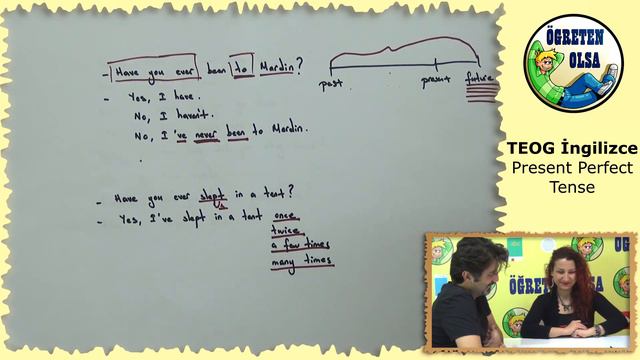 - Have you ever been to Mardin?
- Yes, I have.
No, I haven't.
No, I've never been to Mardin.
past present future
- Have you ever slept in a tent?
- Yes, I've slept in a tent once
twice
a few times
many times
ÖĞRETEN
OLSA
TEOG İngilizce
Present Perfect
Tense
ÖĞRE
YEN OLSA